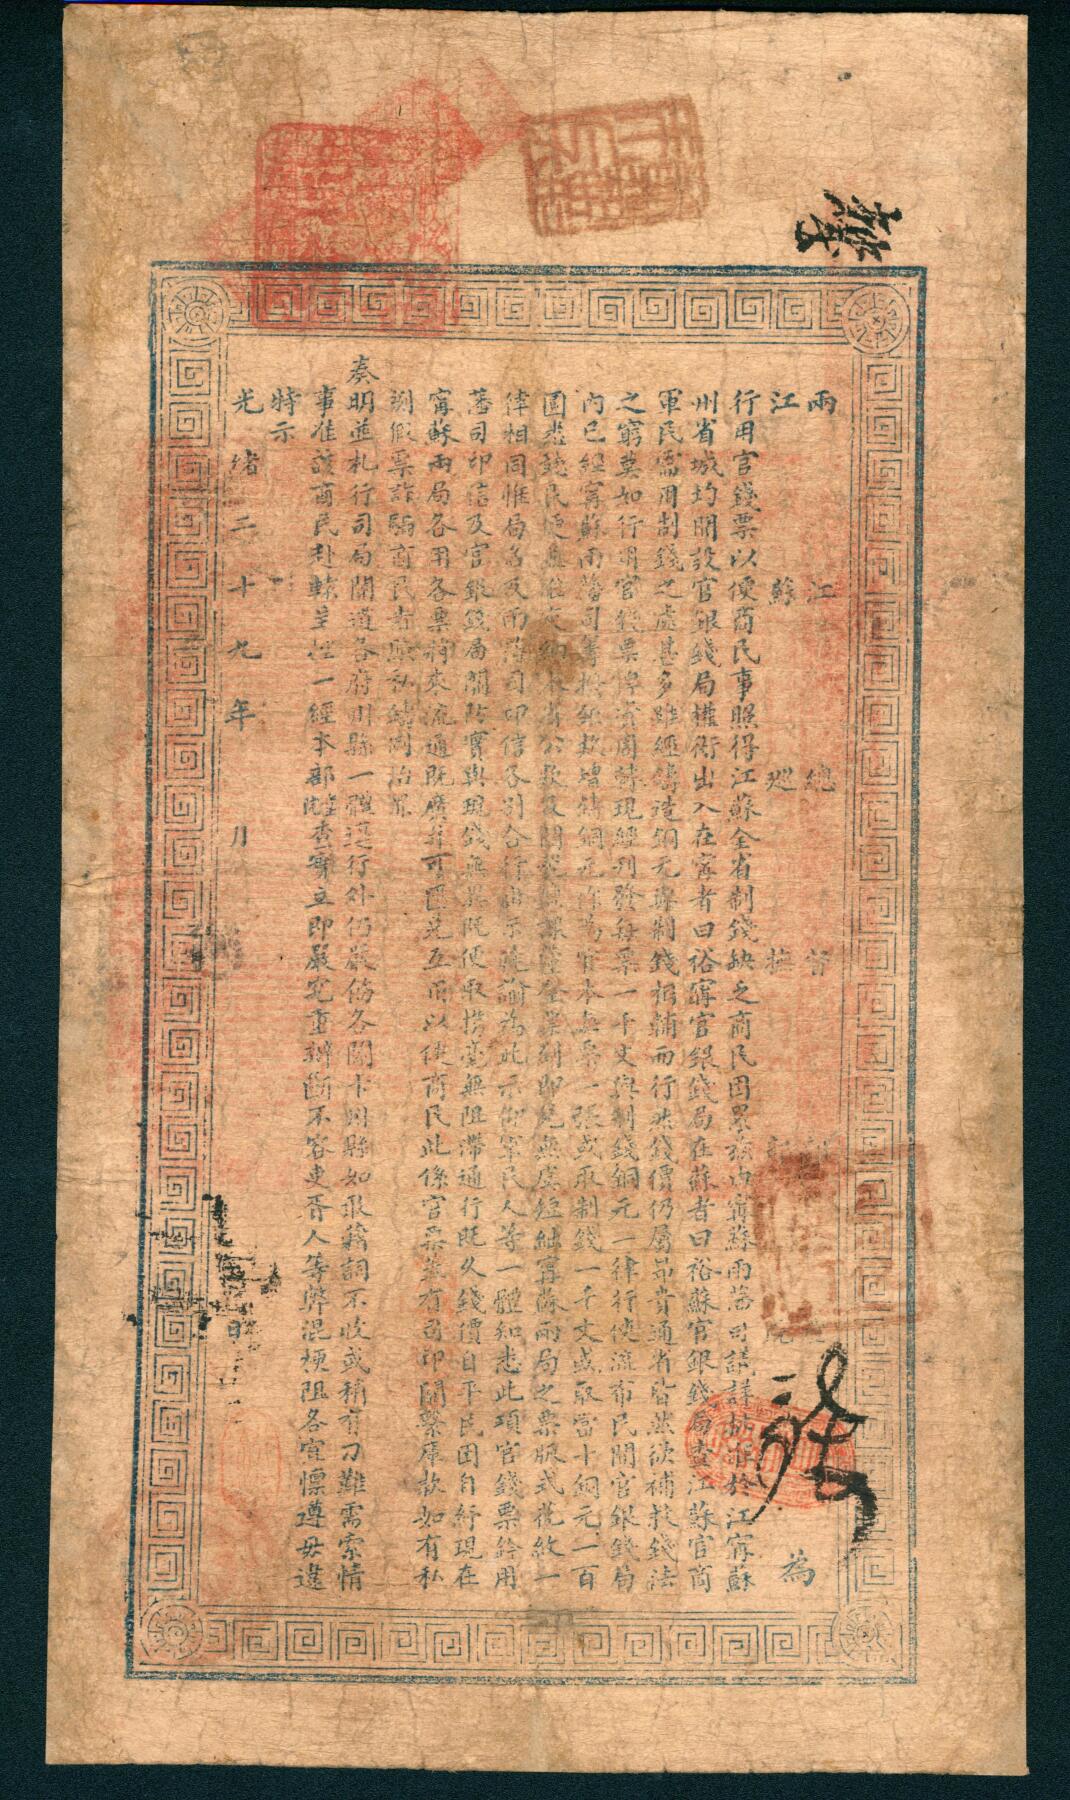 兩江總督部
江蘇巡撫部院為
行用官錢票以便商民事照得江蘇全省制錢缺乏商民困累茲由寧蘇兩藩司議詳於江寧蘇
州省城均開設官銀錢局權衡出入在寧者曰裕寧官銀錢局在蘇者曰裕蘇官銀錢局查江蘇官商
軍民需用制錢之處甚多雖經鑄造銅元與制錢相輔而行然錢價仍屬昂貴通省皆然欲補救錢法
之窮莫如行用官錢票俾資周轉現經刊發每票一千文與制錢銅元一律行使流布民間官銀錢局
內已經寧蘇兩藩司籌撥鉅款增鑄銅元作為官本無票一張或取制錢一千文或取當十銅元一百
圓悉聽民便並准完納本省公款及關稅鹽課釐金票到即兌無虞短絀寧蘇兩局之票版式花紋一
律相同惟局名及兩藩司印信各別合行出示曉諭為此示仰軍民人等一體知悉此項官錢票鈐用
藩司印信及官銀錢局關防實與現錢無異既便取攜毫無阻滯通行既久錢價自平民困自紓現在
寧蘇兩局各用各票將來流通既廣並可匯兌互用以便商民此係官票蓋有司印關繫庫款如有私
刻假票詐騙商民者照私鑄例治罪
奏明並札行司局關道各府州縣一體遵行外仍嚴飭各關卡州縣如敢藉詞不收或稍有刁難需索情
事准該商民赴轅呈控一經本部院查實立即嚴究重辦斷不容吏胥人等弊混梗阻各宜懍遵毋違
特示
光緒二十九年 月 日